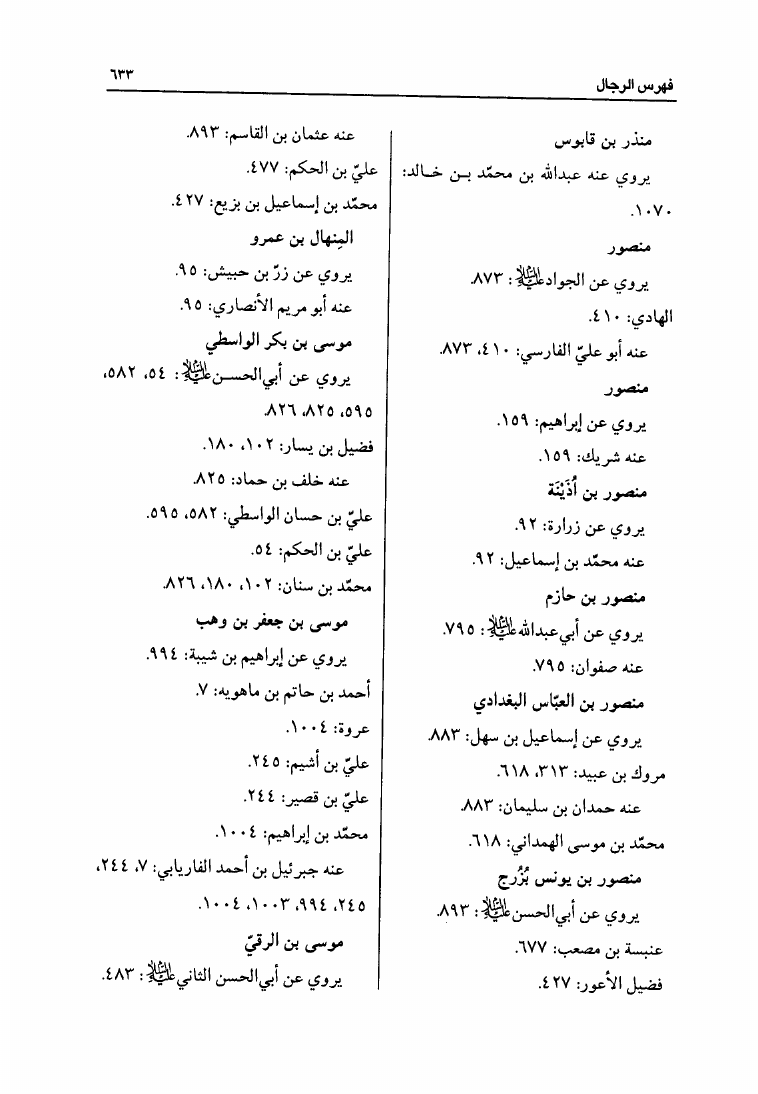 فهرس الرجال
٦٣٣
منذر بن قابوس
يروي عنه عبدالله بن محمّد بـن خـالد:
١٠٧٠.
منصور
يروي عن الجواد عليه السلام: ٨٧٣.
الهادي: ٤١٠.
عنه أبو عليّ الفارسي: ٤١٠، ٨٧٣.
منصور
يروي عن إبراهيم: ١٥٩.
عنه شريك: ١٥٩.
منصور بن أُذَيْنَة
يروي عن زرارة: ٩٢.
عنه محمّد بن إسماعيل: ٩٢.
منصور بن حازم
يروي عن أبي عبدالله عليه السلام: ٧٩٥.
عنه صفوان: ٧٩٥.
منصور بن العبّاس البغدادي
يروي عن إسماعيل بن سهل: ٨٨٣.
مروك بن عبيد: ٣١٣، ٦١٨.
عنه حمدان بن سليمان: ٨٨٣.
محمّد بن موسى الهمداني: ٦١٨.
منصور بن يونس بُزُرج
يروي عن أبي الحسن عليه السلام: ٨٩٣.
عنبسة بن مصعب: ٦٧٧.
فضيل الأعور: ٤٢٧.
عنه عثمان بن القاسم: ٨٩٣.
عليّ بن الحكم: ٤٧٧.
محمّد بن إسماعيل بن بزيع: ٤٢٧.
المِنهال بن عمرو
يروي عن زرّ بن حبيش: ٩٥.
عنه أبو مريم الأنصاري: ٩٥.
موسى بن بكر الواسطي
يروي عن أبي الحسـن عليه السلام: ٥٤، ٥٨٢،
٥٩٥، ٨٢٥، ٨٢٦.
فضيل بن يسار: ١٠٢، ١٨٠.
عنه خلف بن حماد: ٨٢٥.
عليّ بن حسان الواسطي: ٥٨٢، ٥٩٥.
عليّ بن الحكم: ٥٤.
محمّد بن سنان: ١٠٢، ١٨٠، ٨٢٦.
موسى بن جعفر بن وهب
يروي عن إبراهيم بن شيبة: ٩٩٤.
أحمد بن حاتم بن ماهويه: ٧.
عروة: ١٠٠٤.
عليّ بن أشيم: ٢٤٥.
عليّ بن قصير: ٢٤٤.
محمّد بن إبراهيم: ١٠٠٤.
عنه جبرئيل بن أحمد الفاريابي: ٧، ٢٤٤،
٢٤٥، ٩٩٤، ١٠٠٣، ١٠٠٤.
موسى بن الرقيّ
يروي عن أبي الحسن الثاني عليه السلام: ٤٨٣.